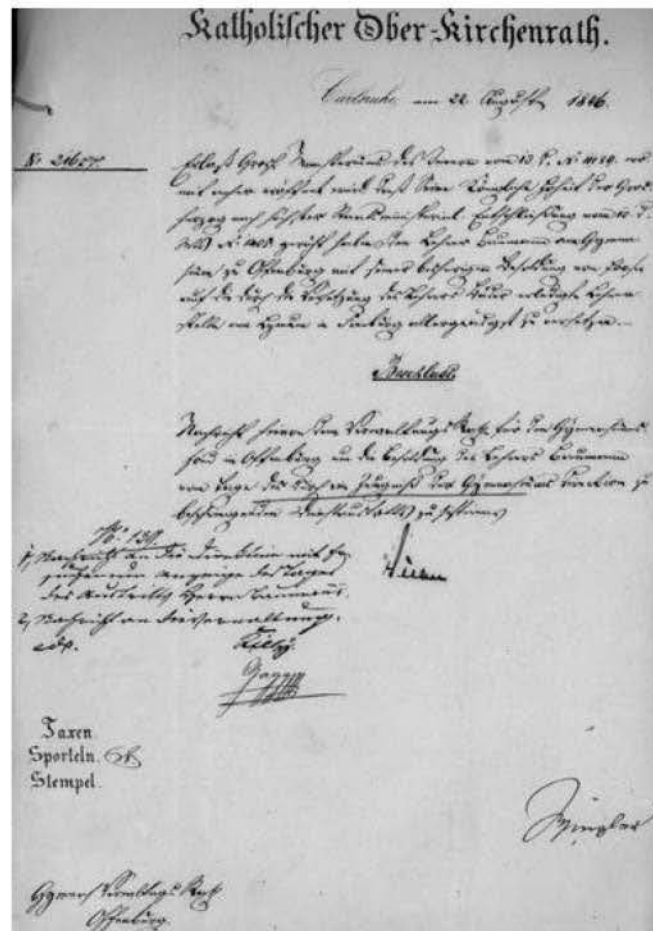 Katholischer Ober-Kirchenrath.
Carlsruhe, am 22 August 1846.
No 21607.
Erlaß Großh. Ministeriums des Innern vom 13 d. No
mit welcher eröffnet wird, daß Seine Königliche Hoheit der Groß-
herzog nach höchster Staatsministerial-Entschließung vom
No geruht haben, den Lehrer Baumann am Gymna-
sium zu Offenburg mit seiner bisherigen Besoldung
auf die durch die Versetzung des Lehrers erledigte Lehr-
stelle am Lyceum in Freiburg allergnädigst zu versetzen.
Beschluß.
Nachricht hievon dem Verwaltungs Rath für den Gymnasiums-
fond in Offenburg um die Besoldung des Lehrers Baumann
vom Tage des durch ein Zeugniß der Gymnasiums Direction zu
bescheinigenden Dienstaustritts zu sistiren
No 139.
1, Nachricht an die Direktion mit
Anzeige des Tages
des Austritts Herrn Baumann.
2, Nachricht an die Verwaltung.
Taxen
Sporteln.
Stempel.
Gymnas. Verwaltungs Rath
Offenburg.